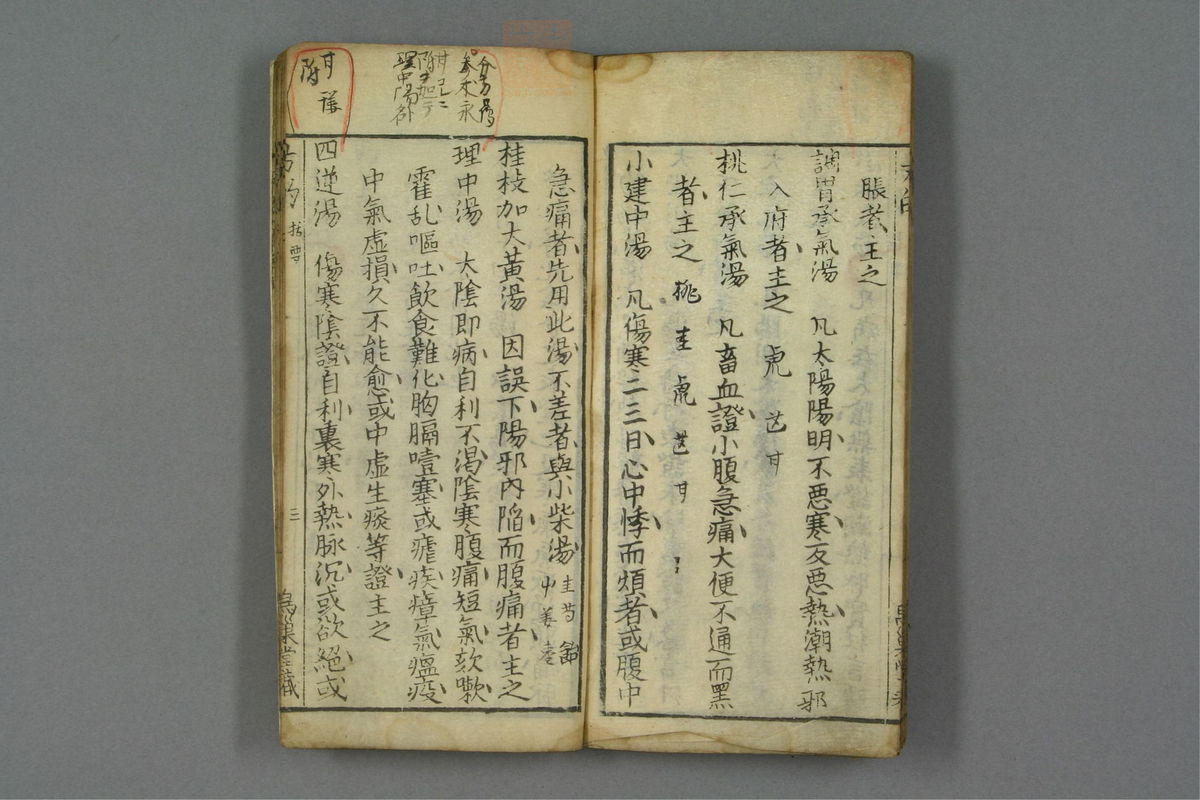 脹者主之
調胃承氣湯　凡太陽陽明不悪寒反悪熱潮熱邪
入府者主之　虎　芒甘
桃仁承氣湯　凡畜血證小腹急痛大便不通而黒
者主之　桃　圭　虎　芒　甘
小建中湯　凡傷寒二三日心中悸而煩者或腹中
急痛者先用此湯不差者與小柴湯　圭芍飴
桂枝加大黄湯　因誤下陽邪內陥而腹痛者主之
理中湯　大陰即病自利不渇陰寒腹痛短氣欬嗽
霍乱嘔吐飲食難化胸膈噎塞或瘧疾瘴氣瘟疫
中氣虚損久不能愈或中虚生痰等證主之
四逆湯　傷寒陰證自利裏寒外熱脉沉或欲絕或
理中湯
甘
附
三